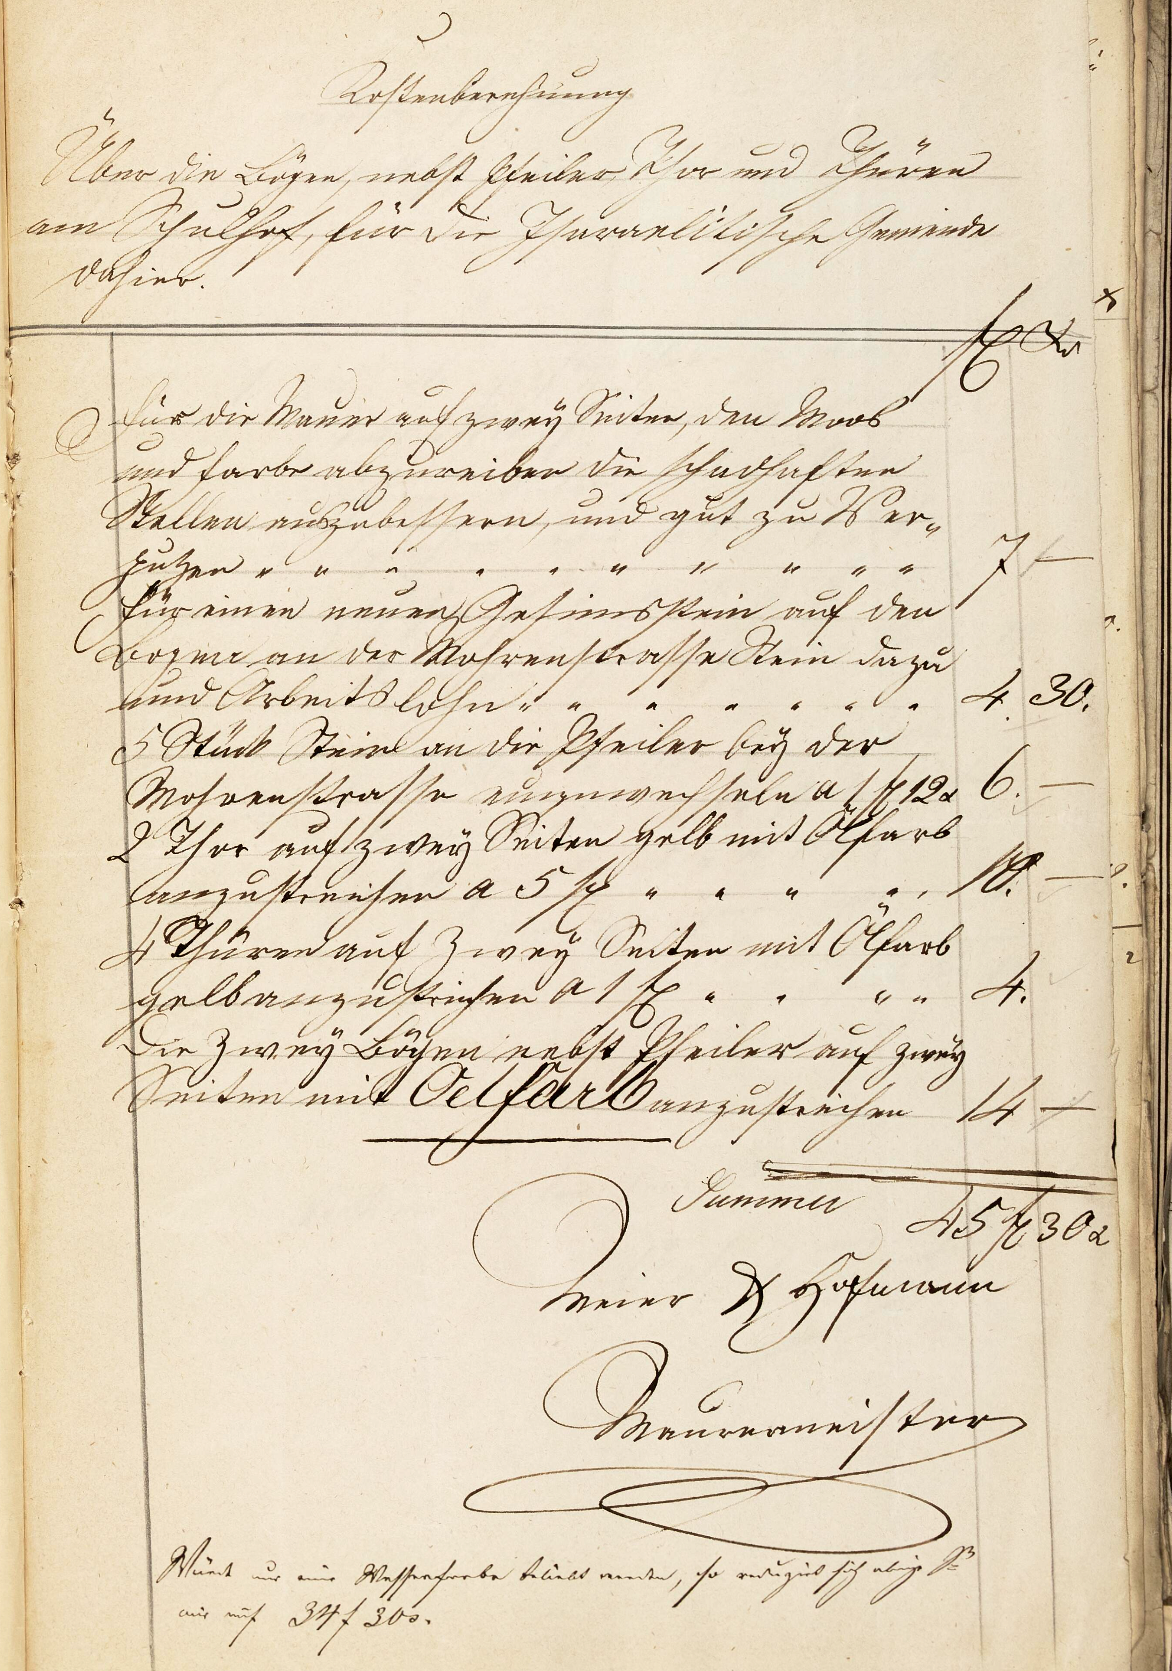 Kostenberechnung
Über die Bögen, nebst Pfeiler Thor und Thüren
am Schulhof, für die Isaraelitische Gemeinde
dahier.
fl Xr
Für die Mauer auf zwey Seiten, den Moos
und Farbe abzureiben die schadhaften
Stellen auszubessern, und gut zu Ver„
putzen „ „ „ „ „ „ „ „ „ „ 7 —
für einen neuen Gesimsstein auf den
Bogen an der Mohrenstrasse Stein dazu
und Arbeitslohn „ „ „ „ „ „ „ 4. 30.
5 Stück Stein an die Pfeiler bey der
Mohrenstrasse einzuwechseln a 1 fl 12 x 6. —
2 Thor auf zwey Seiten gelb mit Ölfarb
anzustreichen a 5 fl „ „ „ „ „ 10. —
4 Thüren auf Zwey Seiten mit Ölfarb
gelb anzustreichen a 1 fl „ „ „ „ 4.
Die Zwey Bögen nebst Pfeiler auf zwey
Seiten mit Oelfarb anzustreichen 14 —
Summa 45 fl 30 x
Meier & Hofmann
Maurermeister
Würde nur eine Wasserfarbe beliebt werden, so reduzirt sich obige
nur auf 34 f 30 x.